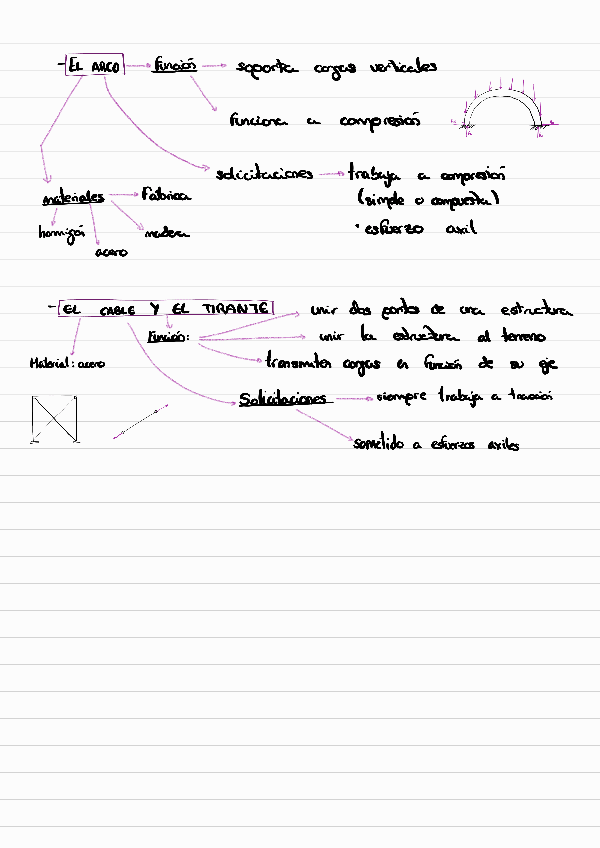 - EL ARCO Función soporta cargas verticales
funciona a compresión
solicitaciones trabaja a compresión
materiales Fábrica (simple o compuesta)
hormigón madera · esfuerzo axil
acero
- EL CABLE Y EL TIRANTE unir dos partes de una estructura
Función: unir la estructura al terreno
Material: acero transmiten cargas en función de su eje
Solicitaciones siempre trabaja a tracción
sometido a esfuerzos axiles